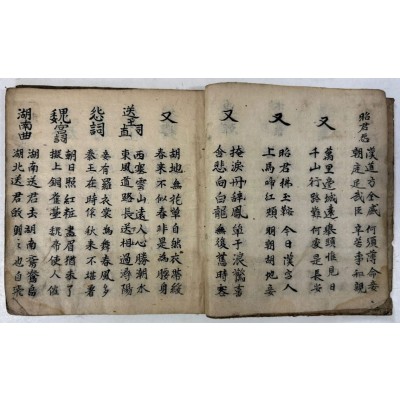 昭君怨
漢道方全盛 何須薄命妾
朝廷足武臣 辛苦事和親
又
萬里邊城遠 舉頭惟見日
千山行路難 何處是長安
又
昭君拂玉鞍 今日漢宮人
上馬啼紅頰 明朝胡地妾
又
掩淚丹辭鳳 單于浪驚喜
含悲向白龍 無復舊時容
又
胡地無花草 自然衣帶緩
春來不似春 非是為腰身
送王司直
西塞雲山遠 人心勝潮水
東風道路長 送相過潯陽
怨詞
妾有羅衣裳 為舞春風多
秦王在時作 秋來不堪著
魏宮詞
朝日照紅粧 畫眉猶未了
擬上銅雀臺 魏帝使人催
湖南曲
湖南送君去 湖南鴛鴦鳥
湖北送君 也自